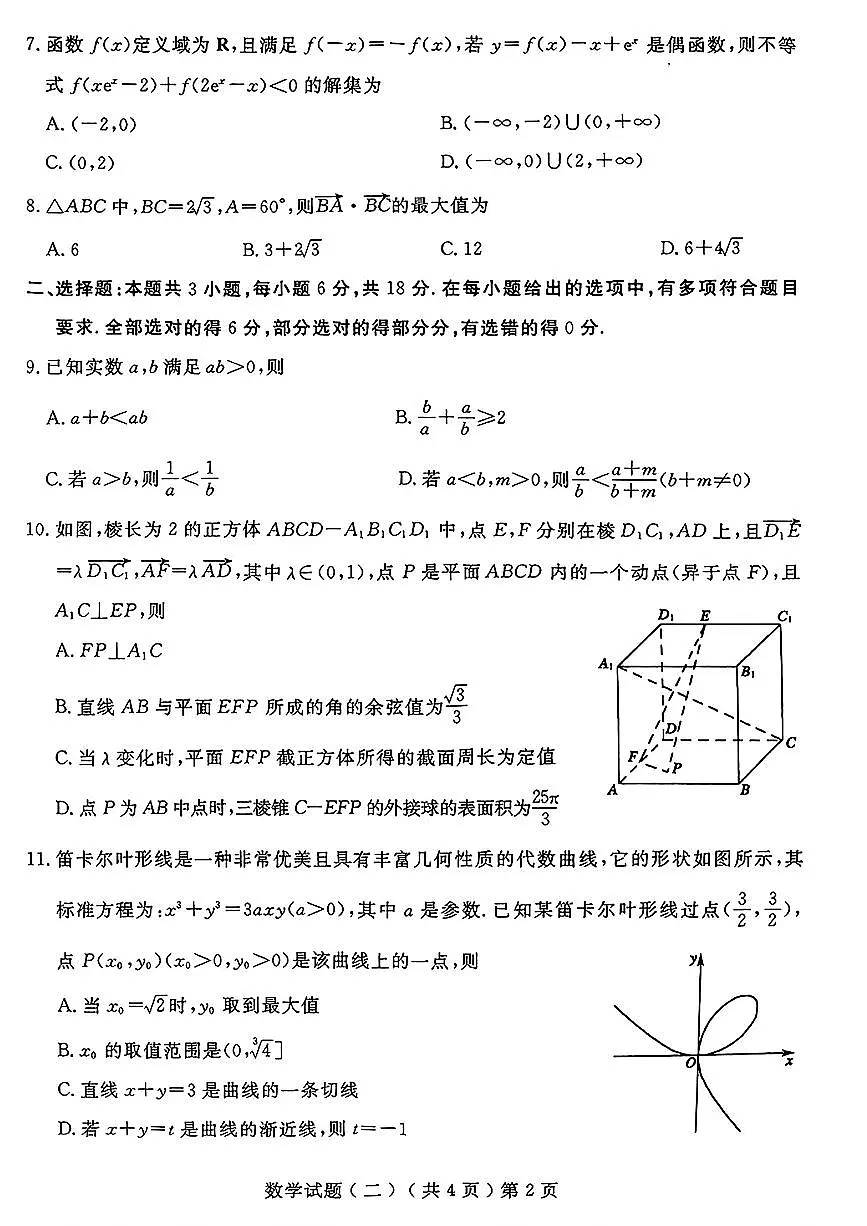 7. 函数 f(x)定义域为 R,且满足 f(-x)=-f(x),若 y=f(x)-x+eˣ 是偶函数,则不等
式 f(xeˣ-2)+f(2eˣ-x)<0 的解集为
A. (-2,0) B. (-∞,-2)∪(0,+∞)
C. (0,2) D. (-∞,0)∪(2,+∞)
8. △ABC 中,BC=2√3,A=60°,则BA→·BC→的最大值为
A. 6 B. 3+2√3 C. 12 D. 6+4√3
二、选择题:本题共 3 小题,每小题 6 分,共 18 分. 在每小题给出的选项中,有多项符合题目
要求. 全部选对的得 6 分,部分选对的得部分分,有选错的得 0 分.
9. 已知实数 a,b 满足 ab>0,则
A. a+b<ab B. b/a+a/b≥2
C. 若 a>b,则1/a<1/b D. 若 a<b,m>0,则a/b<(a+m)/(b+m)(b+m≠0)
10. 如图,棱长为 2 的正方体 ABCD-A₁B₁C₁D₁ 中,点 E,F 分别在棱 D₁C₁,AD 上,且D₁E→
=λD₁C₁→,AF→=λAD→,其中 λ∈(0,1),点 P 是平面 ABCD 内的一个动点(异于点 F),且
A₁C⊥EP,则
A. FP⊥A₁C
B. 直线 AB 与平面 EFP 所成的角的余弦值为√3/3
C. 当 λ 变化时,平面 EFP 截正方体所得的截面周长为定值
D. 点 P 为 AB 中点时,三棱锥 C-EFP 的外接球的表面积为25π/3
D₁ E C₁
A₁ B₁
D C
F P
A B
11. 笛卡尔叶形线是一种非常优美且具有丰富几何性质的代数曲线,它的形状如图所示,其
标准方程为:x³+y³=3axy(a>0),其中 a 是参数. 已知某笛卡尔叶形线过点(3/2,3/2),
点 P(x₀,y₀)(x₀>0,y₀>0)是该曲线上的一点,则
A. 当 x₀=√2时,y₀ 取到最大值
B. x₀ 的取值范围是(0,∛4]
C. 直线 x+y=3 是曲线的一条切线
D. 若 x+y=t 是曲线的渐近线,则 t=-1
y
O x
数学试题(二)(共 4 页)第 2 页